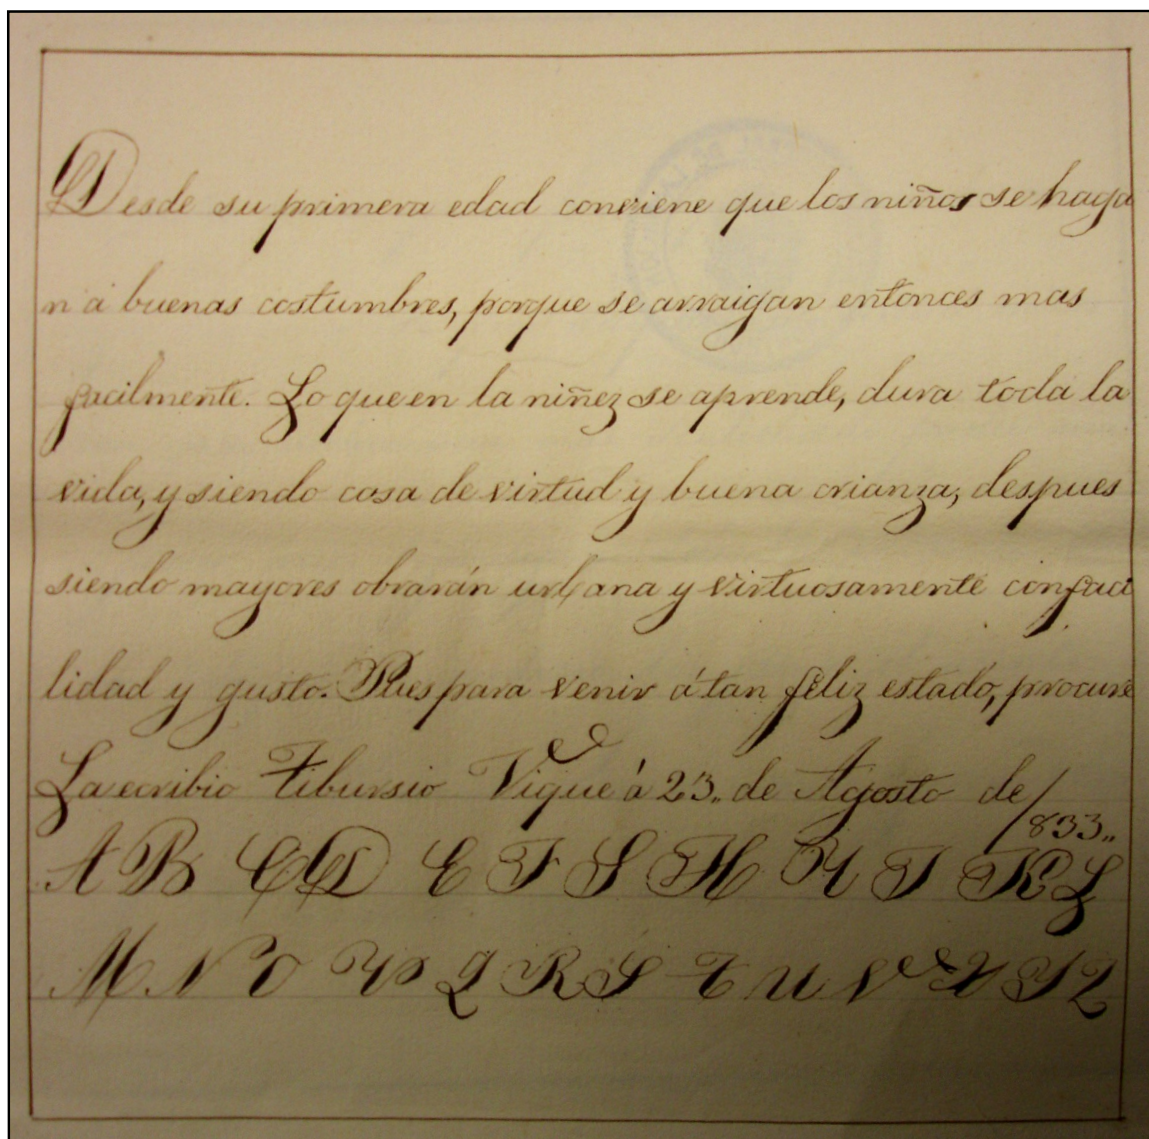 Desde su primera edad conviene que los niños se haga
n á buenas costumbres, porque se arraigan entonces mas
facilmente. Lo que en la niñez se aprende, dura toda la
vida, y siendo cosa de virtud y buena crianza, despues
siendo mayores obrarán urbana y virtuosamente con faci
lidad y gusto. Pues para venir á tan feliz estado, procure
La ecribio Tibursio Vique á 23,, de Agosto de
1833,,
A B C D E F G H Y J K L
M N O P Q R S T U V X Y Z